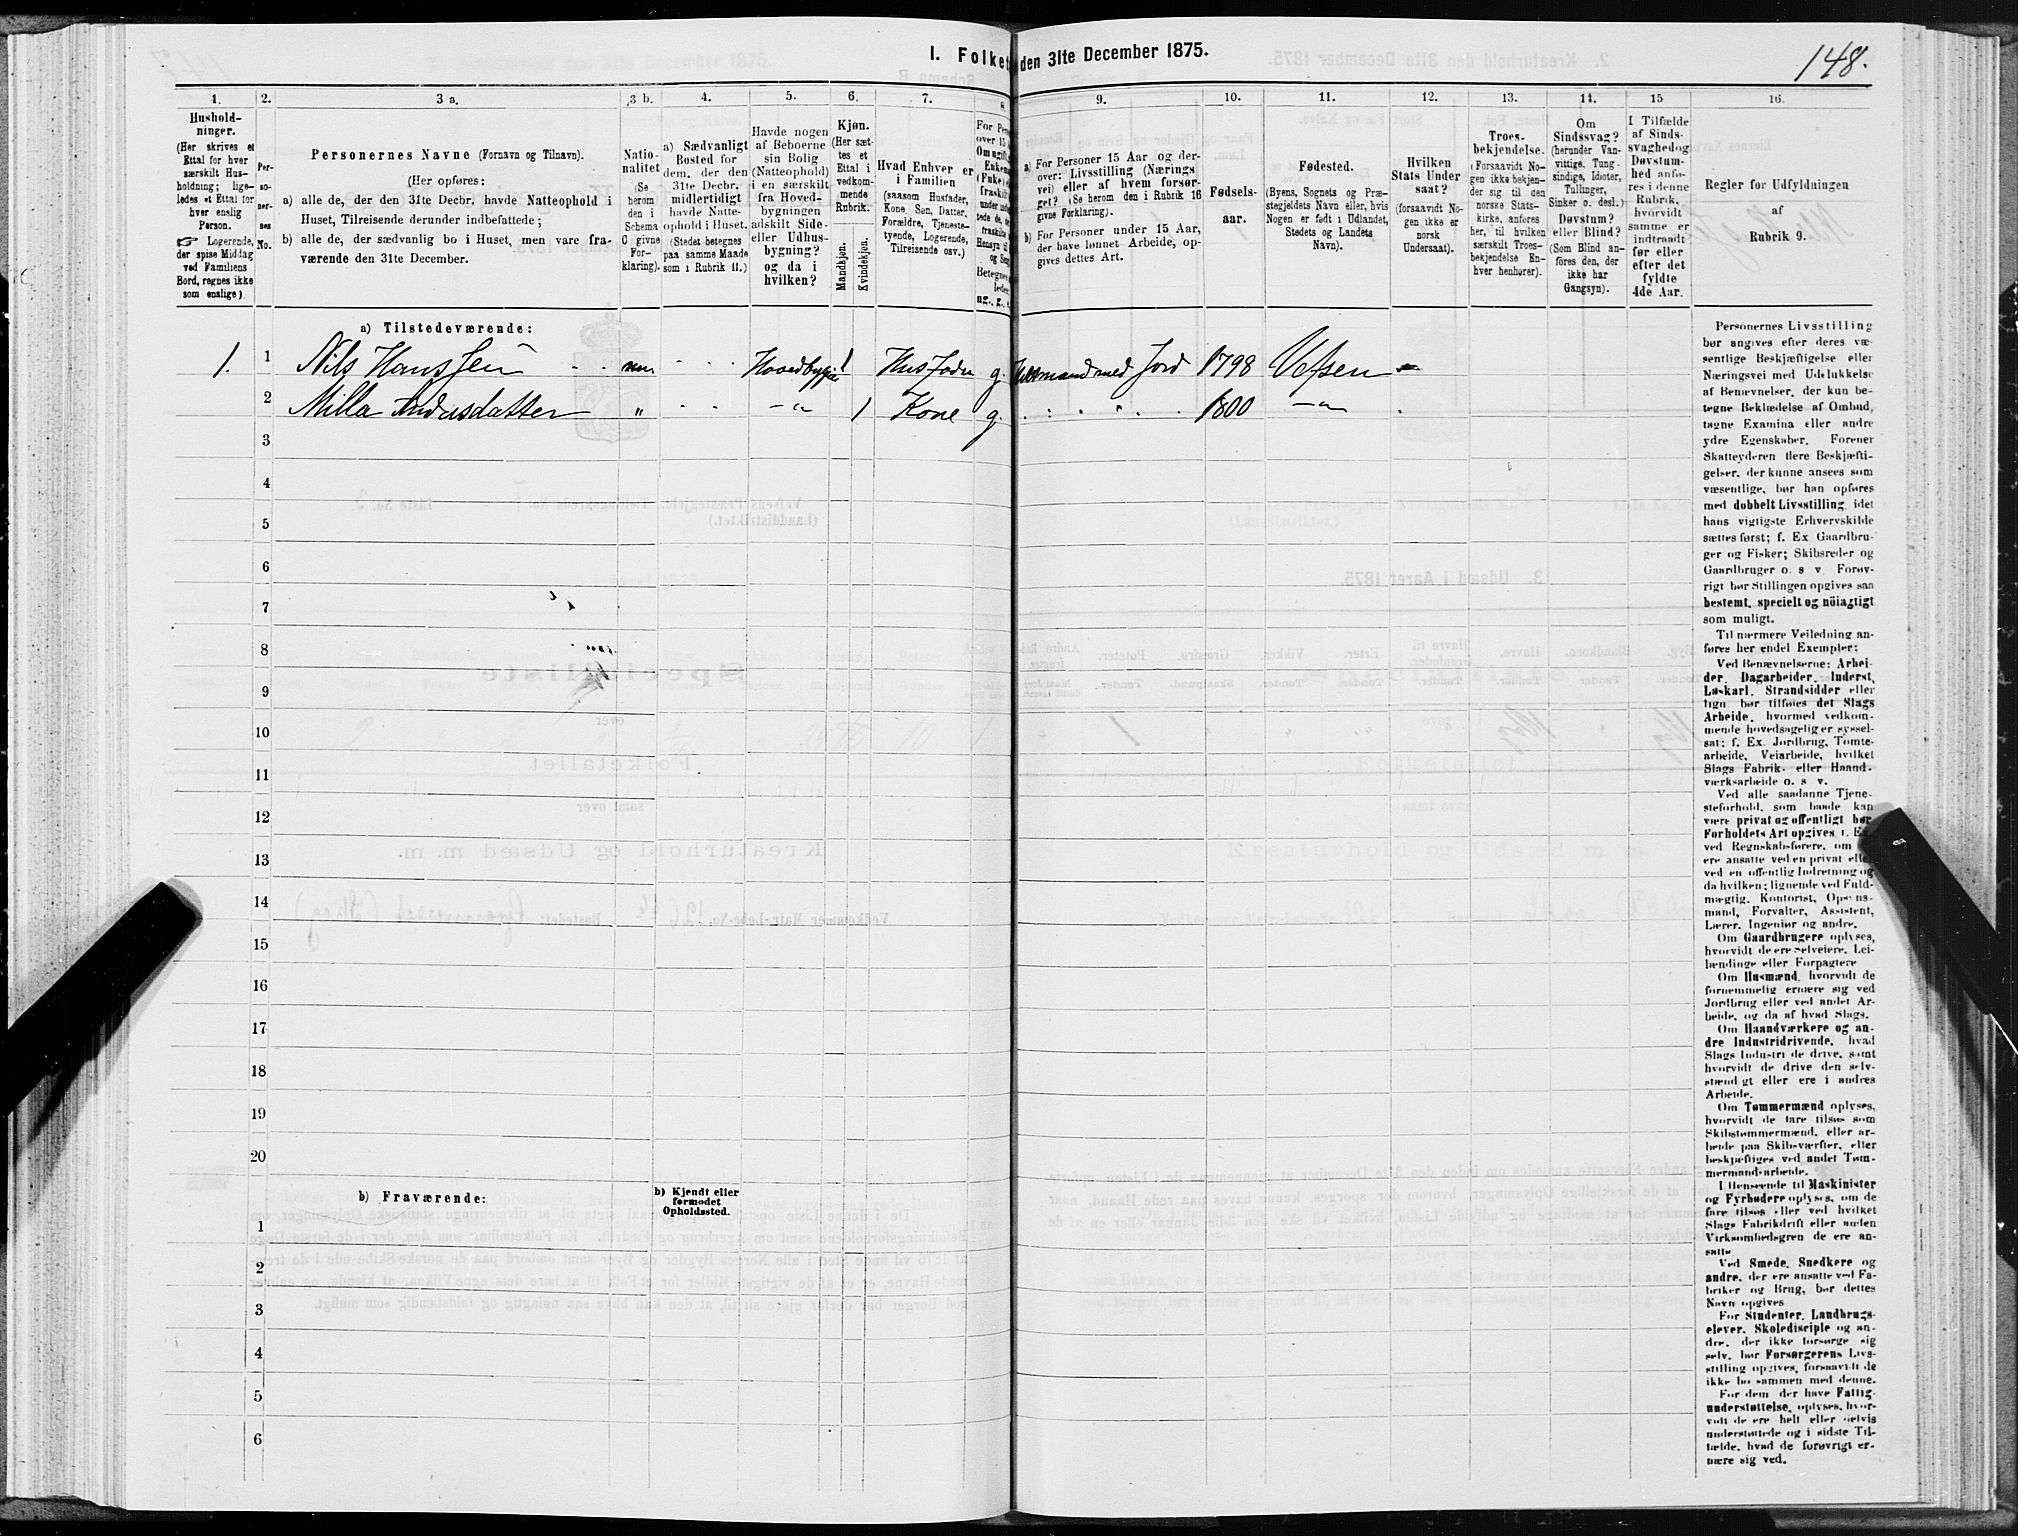 I. Folket den 31te December 1875.
148.
1.
2.
3 a.
3 b.
4.
5.
6.
7.
8.
9.
10.
11.
12.
13.
14.
15
16.
Hushold-
ninger.
(Her skrives et
Ettal for hver
særskilt Hus-
holdning; lige-
ledes et Ettal for
hver enslig
Person.
☞ Logerende,
der spise Middag
ved Familiens
Bord, regnes ikke
som enslige)
Per-
so-
ner-
nes
No.
Personernes Navne (Fornavn og Tilnavn).
(Her opføres:
a) alle de, der den 31te Decbr. havde Natteophold i
Huset, Tilreisende derunder indbefattede;
b) alle de, der sædvanlig bo i Huset, men vare fra-
værende den 31te December.
Natio-
nalitet
(Se
herom
den i
Schema
C givne
For-
klaring).
a) Sædvanligt
Bosted for
dem, der den
31te Decbr.
midlertidigt
havde Natte-
ophold i Huset.
(Stedet betegnes
paa samme Maade
som i Rubrik 11.)
Havde nogen
af Beboerne
sin Bolig
(Natteophold)
i en særskilt
fra Hoved-
bygningen
adskilt Side-
eller Udhus-
bygning?
og da i
hvilken?
Kjøn.
(Her sæt-
tes et
Ettal i
vedkom-
mende
Rubrik.
Mandkjøn.
Kvindekjøn.
Hvad Enhver er
i Familien
(saasom Husfader,
Kone, Søn, Datter,
Forældre, Tjeneste-
tyende, Logerende,
Tilreisende osv.)
a) For Personer 15 Aar og der-
over: Livsstilling (Nærings
vei) eller af hvem forsør-
get? (Se herom den i Rubrik 16
givne Forklaring).
b) For Personer under 15 Aar,
der have lønnet Arbeide, op-
gives dettes Art.
Fødsels-
aar.
Fødested.
(Byens, Sognets og Præ-
stegjeldets Navn eller, hvis
Nogen er født i Udlandet,
Stedets og Landets
Navn).
Hvilken
Stats Under
saat?
(forsaavidt No-
gen ikke er
norsk
Undersaat).
Troes-
bekjendelse.
(Forsaavidt No-
gen ikke bekjen-
der sig til den
norske Stats-
kirke, anføres
her, til hvilken
særskilt Troes-
bekjendelse En-
hver henhører).
Om
Sindssvag?
(herunder Van-
vittige, Tung-
sindige, Idioter,
Tullinger,
Sinker o. desl.)
Døvstum?
eller Blind?
(Som Blind an-
føres den, der
ikke har
Gangsyn).
I Tilfælde
af Sinds-
svaghedog
Døvstum-
hed anfø-
res i denne
Rubrik,
hvorvidt
samme er
indtraadt
før eller
efter det
fyldte
4de Aar.
Regler for Udfyldningen
af
Rubrik 9.
a) Tilstedeværende:
1. 1 Nils Hanssen nn Hovedbygn 1 Husfader g. Husmand med Jord 1798 Vefsen -
2 Milla Andersdatter " - " - 1 Kone g. 1800 - " -
3
4
5
6
7
8
9
10
11
12
13
14
15
16
17
18
19
20
b) Fraværende:
b) Kjendt eller
formodet
Opholdssted.
1
2
3
4
5
6
Personernes Livsstilling
bør angives efter deres væ-
sentlige Beskjæftigelse eller
Næringsvei med Udelukkelse
af Benævnelser, der kun be-
tegne Beklædelse af Ombud,
tagne Examina eller andre
ydre Egenskaber. Forener
Skatteyderen flere Beskjæfti-
gelser, der kunne ansees som
væsentlige, bør han opføres
med dobbelt Livsstilling, idet
hans vigtigste Erhvervskilde
sættes først; f. Ex Gaardbru-
ger og Fisker; Skibsreder og
Gaardbruger o. s v. Forøv-
rigt bør Stillingen opgives saa
bestemt, specielt og nöiagtigt
som muligt.
Til nærmere Veiledning an-
føres her endel Exempler:
Ved Benævnelserne: Arbei-
der, Dagarbeider, Inderst,
Løskarl, Strandsidder eller
lign. bør tilføies det Slags
Arbeide, hvormed vedkom-
mende hovedsagelig er syssel-
sat; f. Ex. Jordbrug, Tomte-
arbeide, Veiarbeide, hvilket
Slags Fabrik- eller Haand-
værksarbeide o. s v.
Ved alle saadanne Tjene-
steforhold, som baade kan
være privat og offentligt bør
Forholdets Art opgives, f. Ex.
ved Regnskabsførere, om de
ere ansatte ved en privat eller
ved en offentlig Indretning og
da hvilken; lignende ved Fuld-
mægtig, Kontorist, Opsyns-
mand, Forvalter, Assistent,
Lærer, Ingeniør og andre.
Om Gaardbrugere oplyses,
hvorvidt de ere Selveiere, Lei-
lændinge eller Forpagtere
Om Husmænd, hvorvidt de
fornemmelig ernære sig ved
Jordbrug eller ved andet Ar-
beide, og da af hvad Slags.
Om Haandværkere og an-
dre Industridrivende, hvad
Slags Industri de drive, samt
hvorvidt de drive den selv-
stændigt eller ere i andres
Arbeide.
Om Tømmermænd oplyses,
hvorvidt de fare tilsøs som
Skibstømmermænd, eller ar-
beide paa Skibsværfter, eller
beskjæftiges ved andet Tøm-
mermandsarbeide.
I Henseende til Maskinister
og Fyrbødere oplyses, om de
fare tilsøs eller ved hvilket
Slags Fabrikdrift eller anden
Virksomhedsgren de ere an-
satte.
Ved Smede, Snedkere og
andre, der ere ansatte ved Fa-
briker og Brug, bør dettes
Navn opgives
For Studenter, Landbrugs-
elever, Skoledisciple og an-
dre, der ikke forsørge sig
selv, bør Forsørgerens Livs-
stilling opgives, forsaavidt de
ikke bo sammen med denne.
For dem der have Fattig-
understøttelse, oplyses, hvor-
vidt de ere helt eller delvis
understøttede og i sidste Til-
fælde, hvad de forøvrigt er-
nære sig ved.